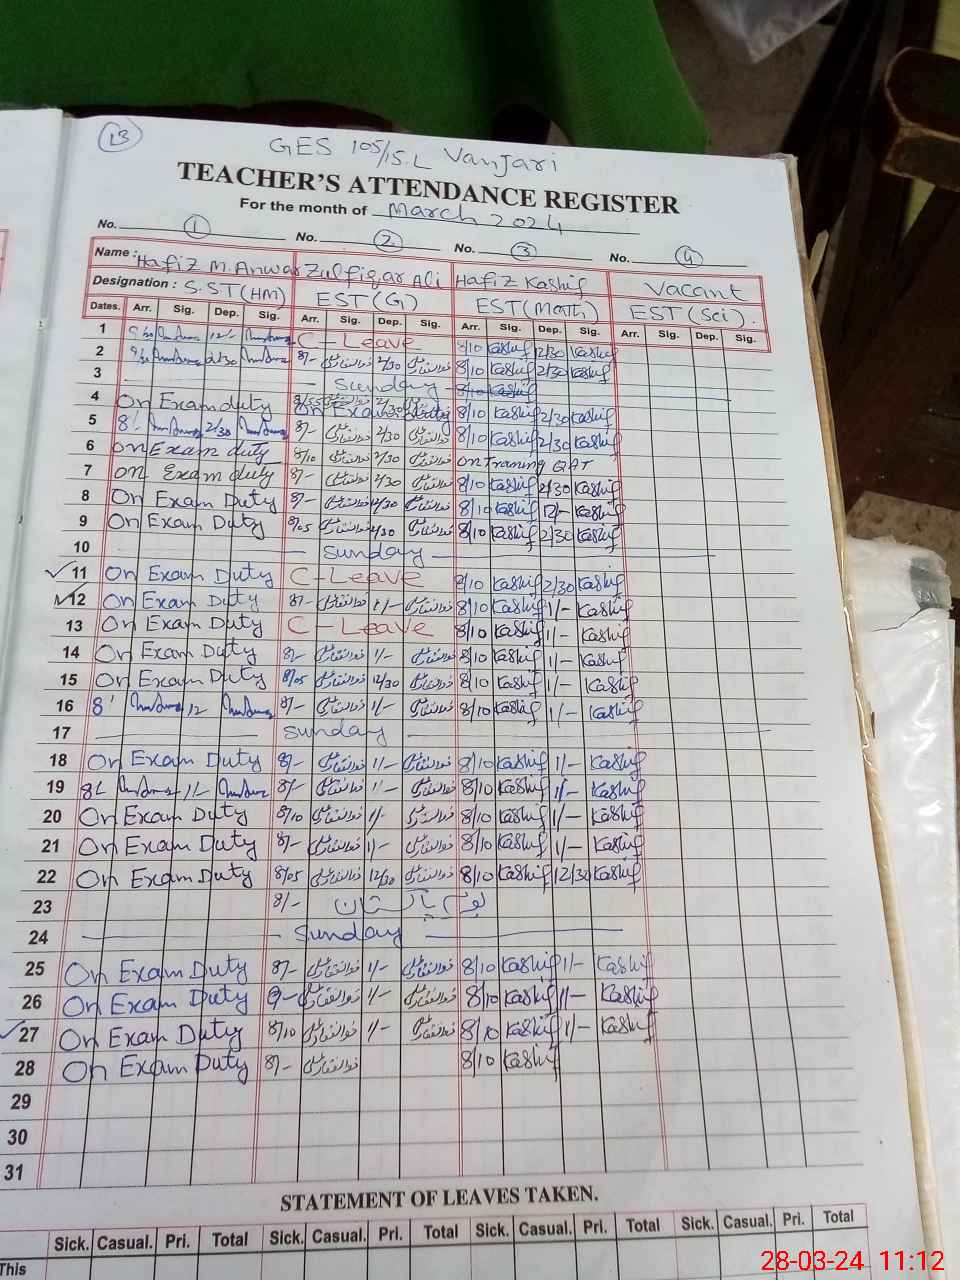 13
GES 105/15.L Vanjari
TEACHER'S ATTENDANCE REGISTER
For the month of March 2024
No. 1 No. 2 No. 3 No. 4
Name : Hafiz M. Anwar Zulfiqar Ali Hafiz Kashif Vacant
Designation : S.ST(HM) EST(G) EST(Math) EST(Sci).
Dates. Arr. Sig. Dep. Sig. Arr. Sig. Dep. Sig. Arr. Sig. Dep. Sig. Arr. Sig. Dep. Sig.
1 12/- C-Leave 8/10 Kashif 12/30 Kashif
2 2/30 8/- ذوالفقار علی 2/30 ذوالفقار علی 8/10 Kashif 2/30 Kashif
3 Sunday 8/10 Kashif
4 On Exam duty On Exam duty 8/10 Kashif 2/30 Kashif
5 8/ 2/30 8/- ذوالفقار علی 2/30 ذوالفقار علی 8/10 Kashif 2/30 Kashif
6 on Exam duty 8/10 ذوالفقار علی 2/30 ذوالفقار علی on Training QAT
7 on Exam duty 8/- ذوالفقار علی 2/30 ذوالفقار علی 8/10 Kashif 2/30 Kashif
8 On Exam Duty 8/- ذوالفقار علی ذوالفقار علی 8/10 Kashif 12/- Kashif
9 On Exam Duty 8/05 ذوالفقار علی 2/30 ذوالفقار علی 8/10 Kashif 2/30 Kashif
10 Sunday
11 On Exam Duty C-Leave 8/10 Kashif 2/30 Kashif
12 On Exam Duty 8/- ذوالفقار علی 1/- ذوالفقار علی 8/10 Kashif 1/- Kashif
13 On Exam Duty C-Leave 8/10 Kashif 1/- Kashif
14 On Exam Duty 8/- ذوالفقار علی 1/- ذوالفقار علی 8/10 Kashif 1/- Kashif
15 On Exam Duty 8/05 ذوالفقار علی 12/30 ذوالفقار علی 8/10 Kashif 1/- Kashif
16 8' 12 8/- ذوالفقار علی 1/- ذوالفقار علی 8/10 Kashif 1/- Kashif
17 Sunday
18 On Exam Duty 8/- ذوالفقار علی 1/- ذوالفقار علی 8/10 Kashif 1/- Kashif
19 1/- 8/- ذوالفقار علی 1/- ذوالفقار علی 8/10 Kashif 1/- Kashif
20 On Exam Duty 8/10 ذوالفقار علی 1/- ذوالفقار علی 8/10 Kashif 1/- Kashif
21 On Exam Duty 8/- ذوالفقار علی 1/- ذوالفقار علی 8/10 Kashif 1/- Kashif
22 On Exam Duty 8/05 ذوالفقار علی 12/30 ذوالفقار علی 8/10 Kashif 12/30 Kashif
23 8/- یوم پاکستان
24 Sunday
25 On Exam Duty 8/- ذوالفقار علی 1/- ذوالفقار علی 8/10 Kashif 1/- Kashif
26 On Exam Duty ذوالفقار علی 1/- ذوالفقار علی 8/10 Kashif 1/- Kashif
27 On Exam Duty 8/10 ذوالفقار علی 1/- ذوالفقار علی 8/10 Kashif 1/- Kashif
28 On Exam Duty 8/- ذوالفقار علی 8/10 Kashif
29
30
31
STATEMENT OF LEAVES TAKEN.
Sick. Casual. Pri. Total Sick. Casual. Pri. Total Sick. Casual. Pri. Total Sick. Casual. Pri. Total
This
28-03-24 11:12